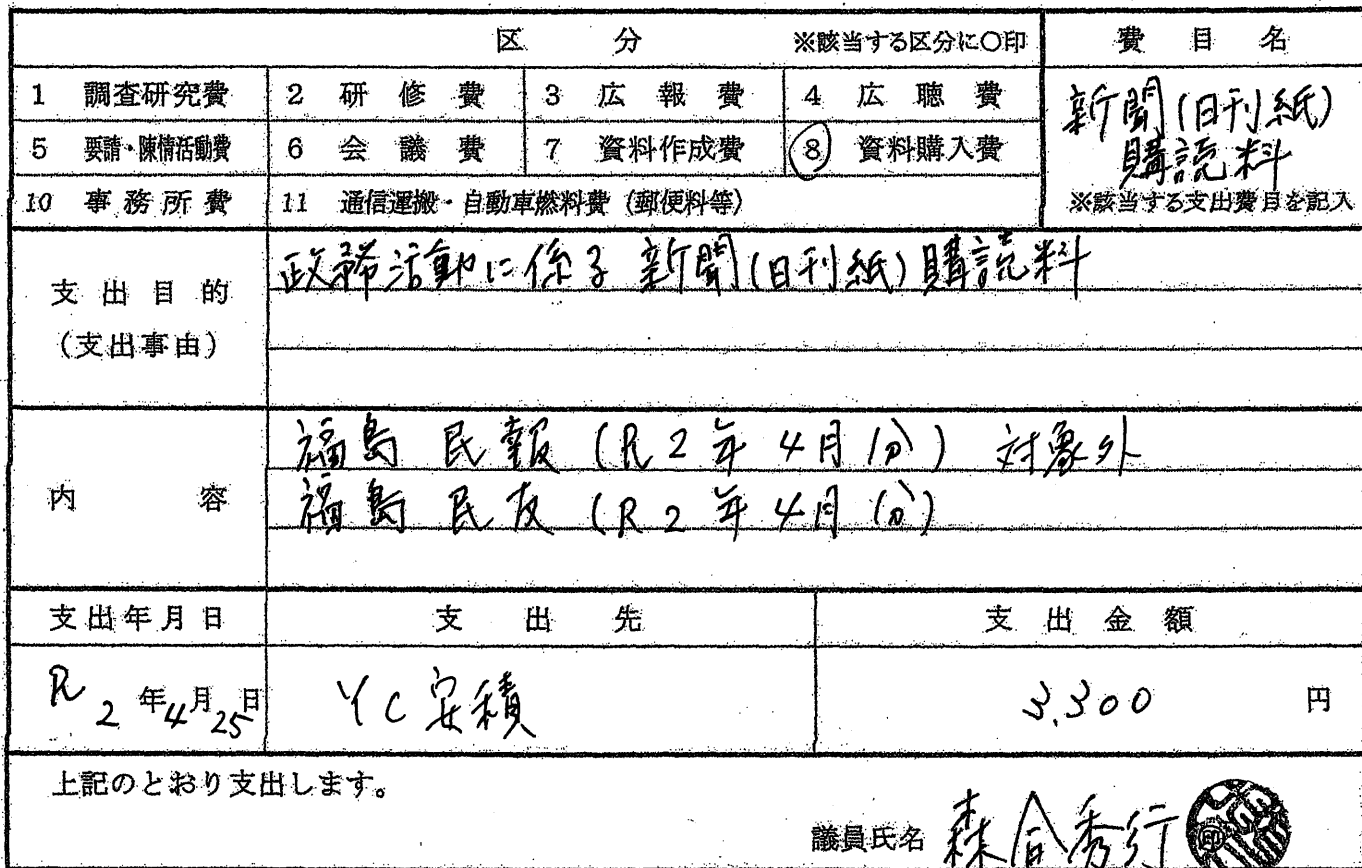 区分 ※該当する区分に○印 費目名
1 調査研究費 2 研修費 3 広報費 4 広聴費
新聞(日刊紙)
5 要請・陳情活動費 6 会議費 7 資料作成費 8 資料購入費
購読料
10 事務所費 11 通信運搬・自動車燃料費(郵便料等) ※該当する支出費目を記入
支出目的
(支出事由)
政務活動に係る新聞(日刊紙)購読料
内容
福島民報(R2年4月分) 対象外
福島民友(R2年4月分)
支出年月日 支出先 支出金額
R2年4月25日 YC安積 3,300 円
上記のとおり支出します。
議員氏名 森合秀行